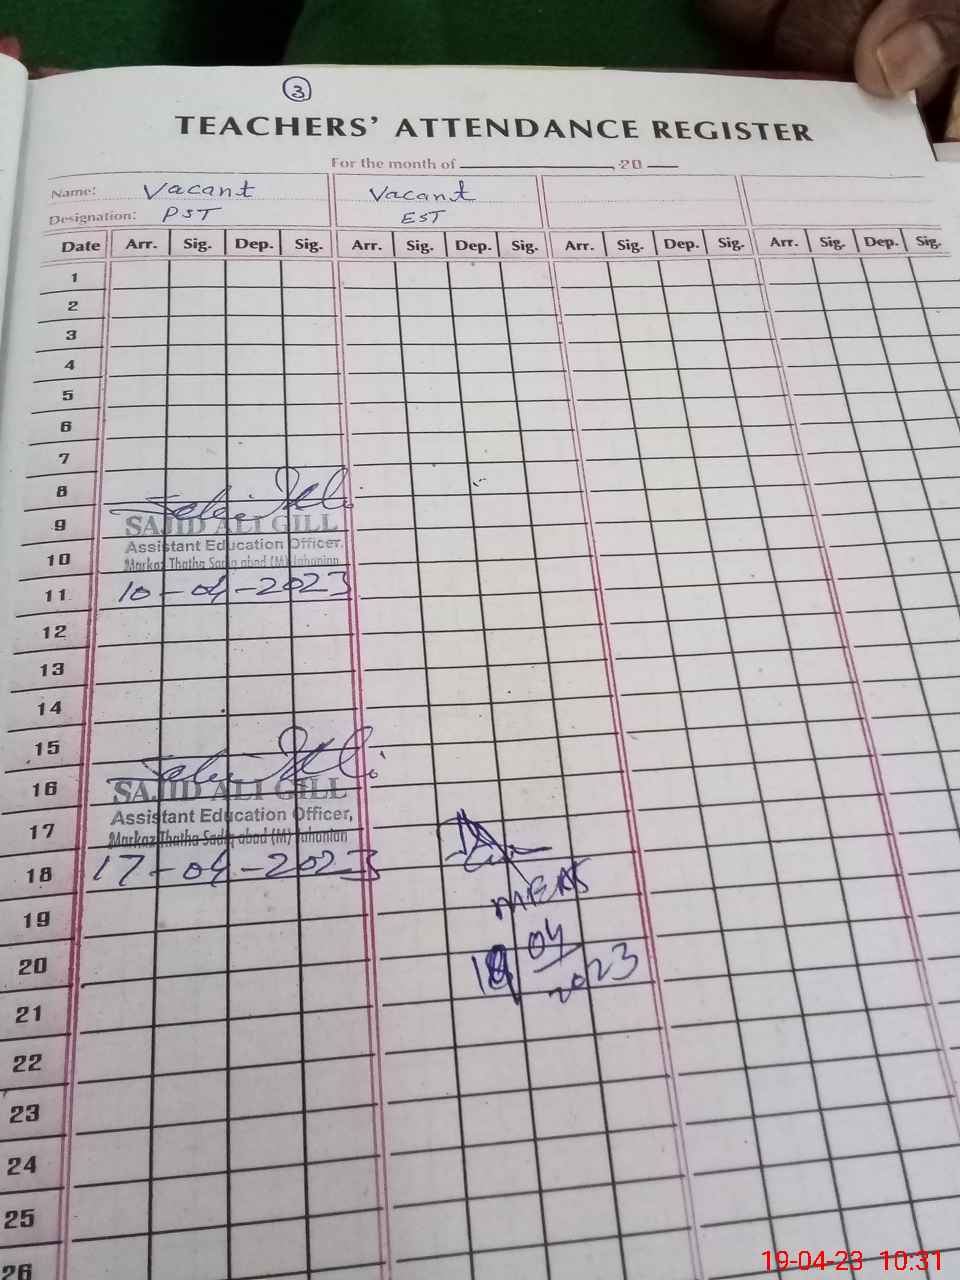 3
TEACHERS' ATTENDANCE REGISTER
For the month of , 20
Name: Vacant Vacant
Designation: PST EST
Date Arr. Sig. Dep. Sig. Arr. Sig. Dep. Sig. Arr. Sig. Dep. Sig. Arr. Sig. Dep. Sig.
1
2
3
4
5
6
7
8
9
SAJID ALI GILL
Assistant Education Officer,
10
Markaz Thatha Sadiq abad (M) Jahanian
11
10-04-2023
12
13
14
15
16
SAJID ALI GILL
Assistant Education Officer,
17
Markaz Thatha Sadiq abad (M) Jahanian
18
17-04-2023
19
20
04
2023
21
22
23
24
25
26
19-04-23 10:31